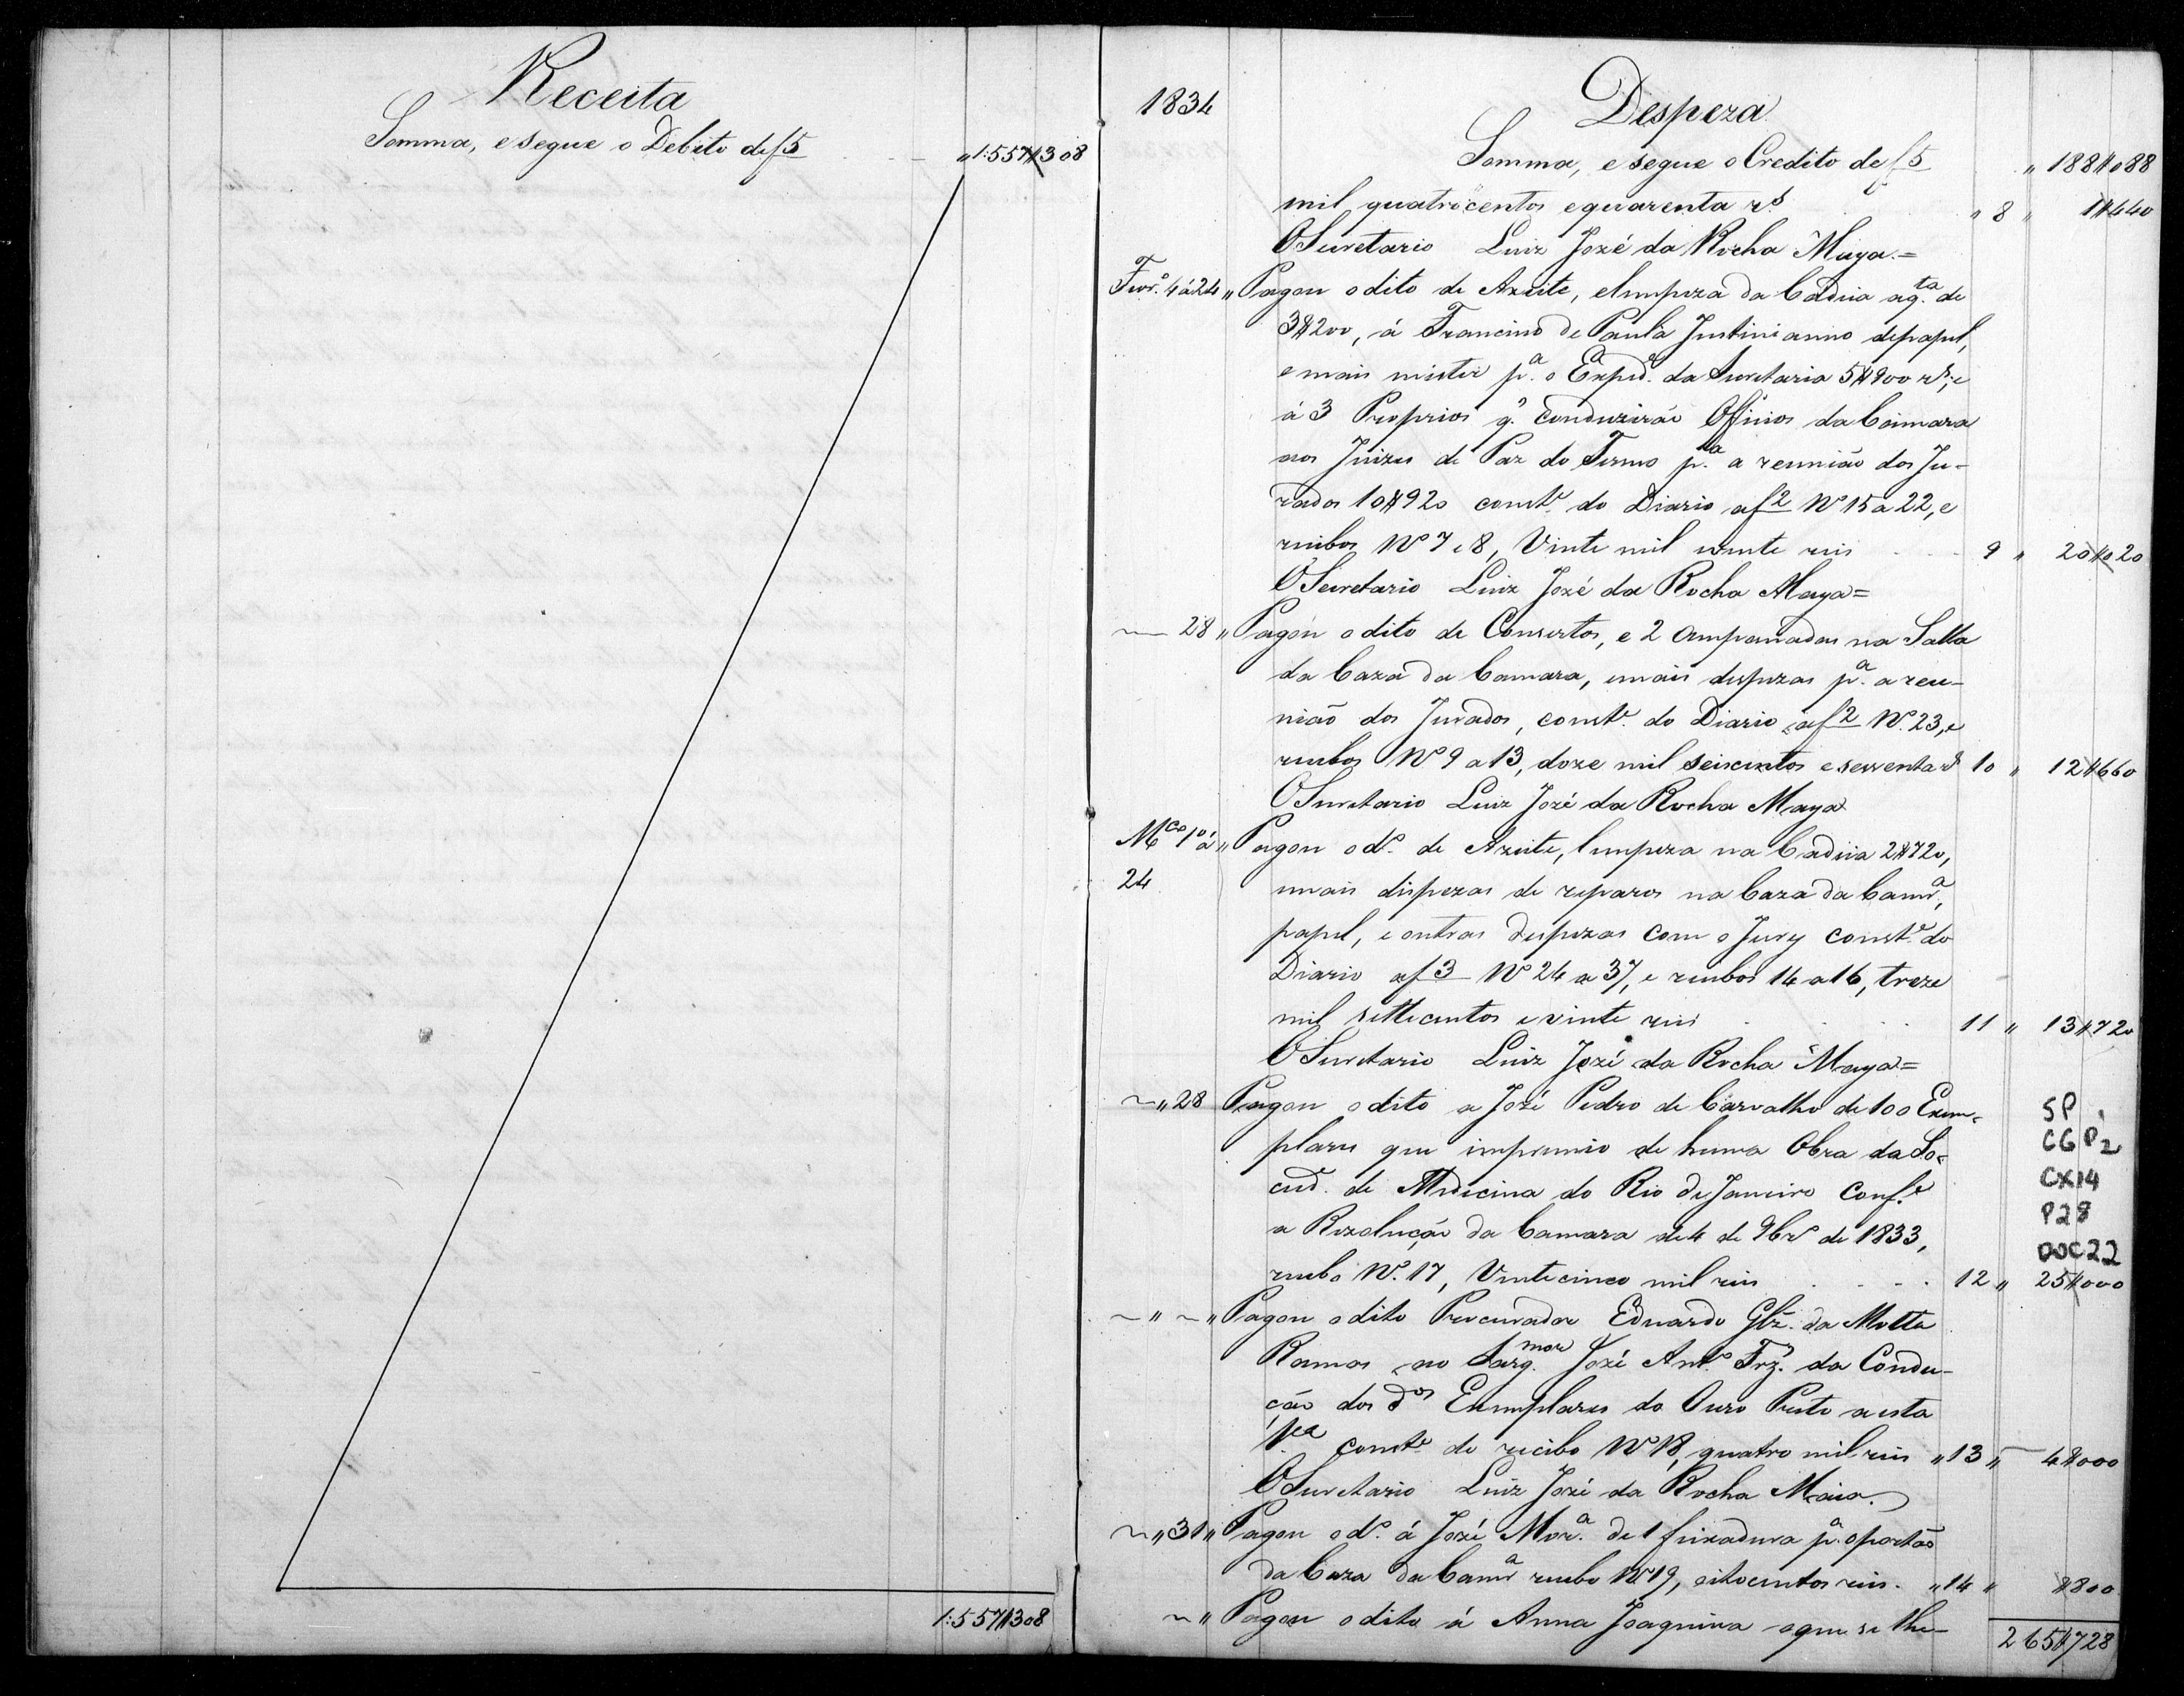 Receita
Somma, e segue o Debito de f 5 " 1:557$308
1:557$308
1834
Despeza
Somma, e segue o Credito de f 5 " 188$088
mil quatrocentos e quarenta rs " 8 " 1$440
O Secretario Luiz José da Rocha Maya =
Fevr.o 4 á 24 " Pagou o dito de Azeite, e limpeza da Cadeia a q.ta de
3$200, á Francisco de Paula Justinianno de papel,
e mais mister p.a o Exped.e da Secretaria 5$900 rs, e
á 3 Proprios q. conduzirão Officios da Camara
aos Juizes de Paz do Termo p.a a reunião dos Ju-
rados 10$920 const.e do Diario a f 2 Nº 15 a 22, e
recibos Nº 7 e 8, Vinte mil e vinte reis 9 " 20$020
O Secretario Luiz José da Rocha Maya =
~ 28 " Pagou o dito de Consertos, e 2 Ampanadas na Salla
da Caza da Camara, e mais despezas p.a a reu-
nião dos Jurados, const.e do Diario a f 2 Nº 23, e
recibos Nº 9 a 13, doze mil seiscentos e sessenta rs 10 " 12$660
O Secretario Luiz José da Rocha Maya
M.ço 1º á " Pagou o d.o de Azeite, limpeza na Cadeia 2$720,
24 e mais dispezas de reparos na Caza da Camr.a,
papel, e outras despezas com o Jury const.e do
Diario a f 3 Nº 24 a 37, e recibos 14 a 16, treze
mil settecentos e vinte reis 11 " 13$720
O Secretario Luiz José da Rocha Maya =
~ " 28 Pagou o dito a José Pedro de Carvalho de 100 Exem-
plares que imprimio de huma Obra da So-
cied.e de Medicina do Rio de Janeiro Conf.e
a Rezolução da Camara de 4 de 9br.o de 1833,
recibo Nº 17, Vinte cinco mil reis 12 " 25$000
SP
CGP2
CX14
P28
DOC22
~ " ~ " Pagou o dito Procurador Eduardo Glz. da Motta
Ramos ao Sarg.mor José Ant.o Frz. da Condu-
ção dos d.os Exemplares do Ouro Preto a esta
V.a const.e do recibo Nº 18, quatro mil reis " 13 " 4$000
O Secretario Luiz José da Rocha Maia.
~ " 31 " Pagou o d.o á José Mor.a de 1 feixadura p.a o portão
da Caza da Camr.a recibo Nº 19, oitocentos reis. " 14 " $800
~ " Pagou o dito á Anna Joaquina o que se lhe
265$728